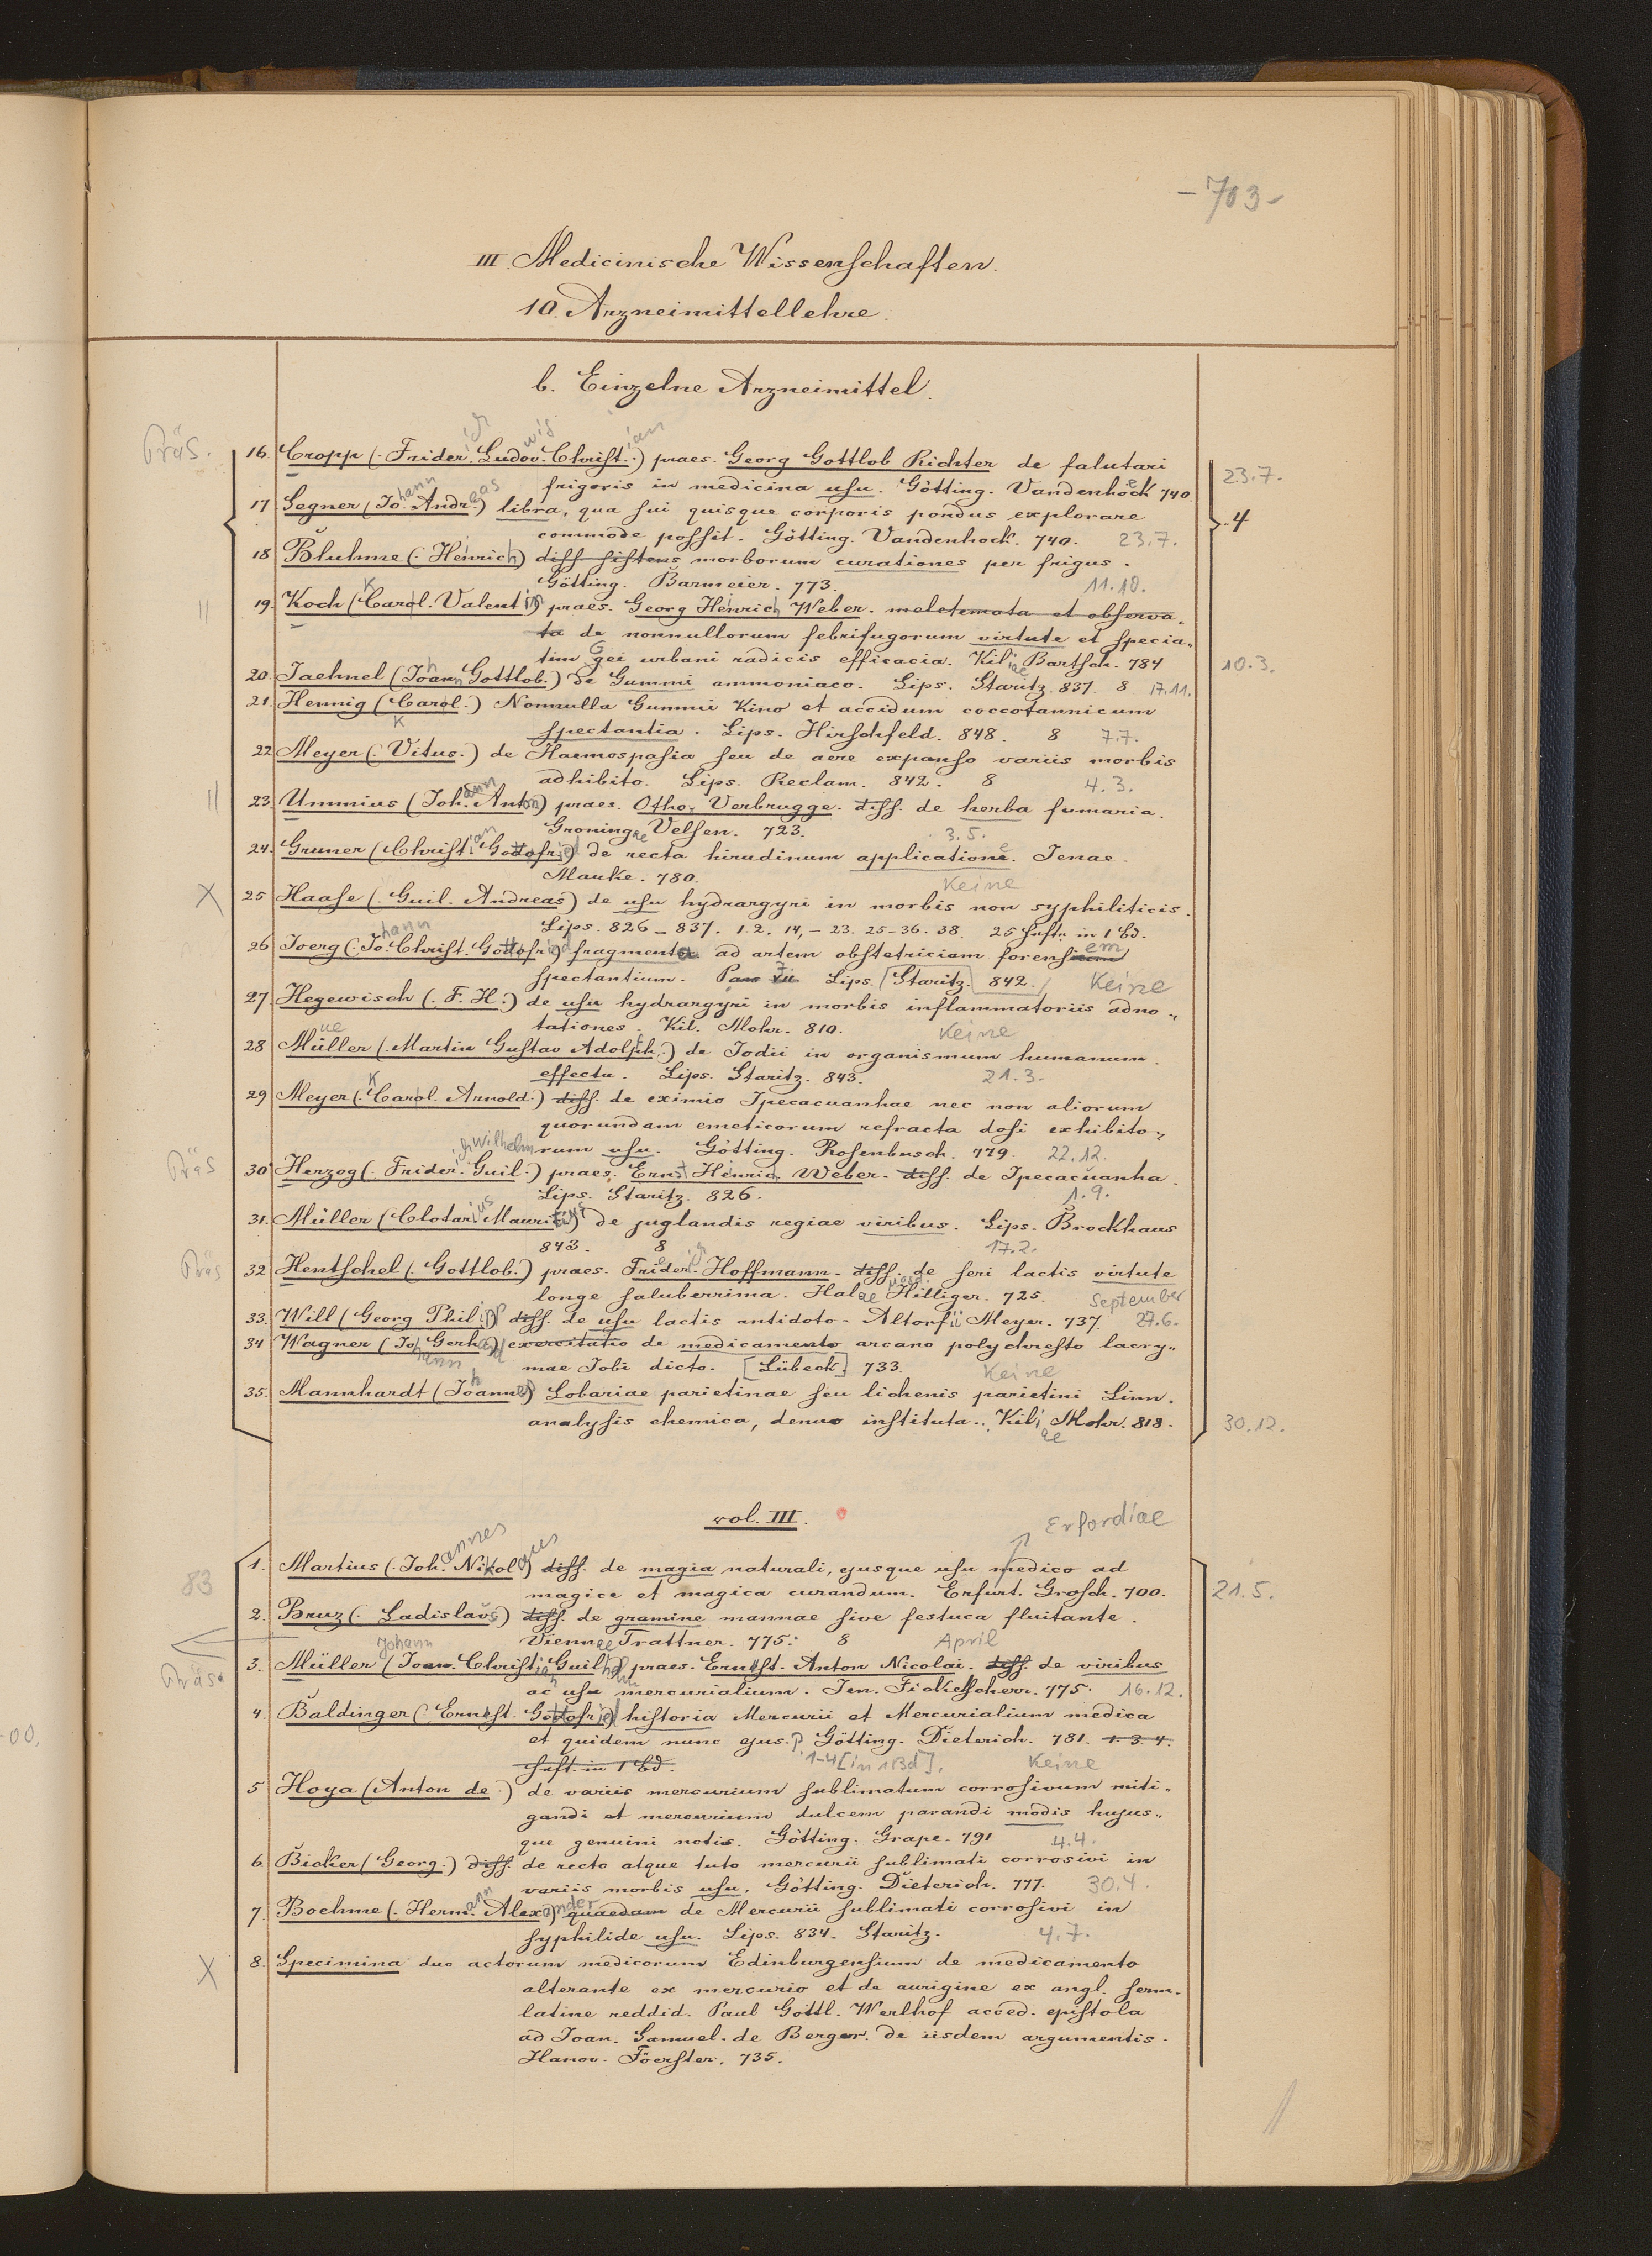 -703-
III. Medicinische Wissenschaften.
10. Arzneimittellehre.
b. Einzelne Arzneimittel.
Präs. 16. Cropp (Friderich Ludovwig Christian) praes. Georg Gottlob Richter de salutari
frigoris in medicina usu. Götting. Vandenhoeck 740. 23.7.
17 Segner (Johann Andreas) libra, qua sui quisque corporis pondus explorare 4
commode possit. Götting. Vandenhock. 740. 23.7.
18 Bluhme (Heinrich) diss sistens morborum curationes per frigus.
Götting. Barmeier. 773. 11.10.
" 19. Koch (Carol. Valentin) praes. Georg Heinrich Weber. meletemata et observa-
ta de nonnullorum febrifugorum virtute et specia-
tim Gei urbani radicis efficacia. Kiliae Bartsch. 784 10.3.
20. Jaehnel (Johann Gottlob.) de Gummi ammoniaco. Lips. Staritz. 837. 8 17.11.
21. Hennig (Carol.) Nonnulla Gummi Kino et accidum coccotannicum
K
spectantia. Lips. Hirschfeld. 848. 8 7.7.
22 Meyer (Vitus.) de Haemospasia seu de aere expanso variis morbis
adhibito. Lips. Reclam. 842. 8 4.3.
" 23. Ummius (Johann Anton) praes. Otho. Verbrugge. diss. de herba fumaria.
Groningae Velsen. 723. 3.5.
24. Gruner (Christian Gottofried) de recta hirudinum applicatione. Jenae.
Mauke. 780. Keine
X 25 Haase (Guil. Andreas) de usu hydrargyri in morbis non syphiliticis.
Lips. 826-837. 1.2. 14,-23. 25-36. 38. 25 Hefte in 1 Bd.
26 Joerg (Johann Christ. Gottofried) fragmenta ad artem obstetriciam forensem
spectantium. Lips. [Staritz.] 842. Keine
27 Hegewisch (F. H.) de usu hydrargyri in morbis inflammatoriis adno-
tationes. Kil. Mohr. 810. Keine
28 Müller (Martin Gustav Adolph.) de Jodii in organismum humanum
effectu. Lips. Staritz. 843. 21.3.
29 Meyer (Carol. Arnold.) diss. de eximio Ipecacuanhae nec non aliorum
quorundam emeticorum refracta dosi exhibito-
rum usu. Götting. Rosenbusch. 779. 22.12.
Präs 30 Herzog (Friderich Wilhelm Guil.) praes. Ernst Heinrich Weber. diss. de Ipecacuanha.
Lips. Staritz. 826. 1.9.
31. Müller (Clotarius Mauritius) de juglandis regiae viribus. Lips. Brockhaus
843. 8 17.2.
Präs 32 Hentschel (Gottlob.) praes. Friederich Hoffmann. diss. de seri lactis virtute
longe saluberrima. Halae Hilliger. 725. September
33. Will (Georg Philipp) diss. de usu lactis antidoto. Altorfii Meyer. 737. 27.6.
34 Wagner (Johann Gerhard) exercitatio de medicamento arcano polychresto lacry-
mae Jobi dicto. [Lübeck] 733. Keine
35. Mannhardt (Johannes) Lobariae parietinae seu lichenis parietini Linn.
analysis chemica, denuo instituta. Kiliae Mohr. 818. 30.12.
vol. III.
Erfordiae
83 1. Martius (Johannes Nikolaus) diss. de magia naturali, ejusque usu medico ad
magice et magica curandum. Erfurt. Grosch. 700. 21.5.
2. Bruz (Ladislaus) diss. de gramine mannae sive festuca fluitante.
Viennae Trattner. 775. 8 April
Präs. 3. Müller (Johann Christian Guilhelm) praes. Ernest. Anton Nicolai. diss. de viribus
ac usu mercurialium. Jen. Fickelscherr. 775. 16.12.
4. Baldinger (Ernest. Gottofried) historia Mercurii et Mercurialium medica
et quidem nunc ejus. P Götting. Dieterich. 781. 1. 3. 4.
Heft. in 1 Bd. 1-4 [in 1 Bd]. Keine
5 Hoya (Anton de.) de variis mercurium sublimatum corrosivum miti-
gandi et mercurium dulcem parandi modis hujus-
que genuini notis. Götting. Grape. 791 4.4.
6. Bicker (Georg.) diss. de recto atque tuto mercurii sublimati corrosivi in
variis morbis usu. Götting. Dieterich. 777. 30.4.
7. Boehme (Hermann Alexander) quaedam de Mercurii sublimati corrosivi in
syphilide usu. Lips. 834. Staritz. 4.7.
X 8. Specimina duo actorum medicorum Edinburgensium de medicamento
alterante ex mercurio et de aurigine ex angl. serm.
latine reddid. Paul Gottl. Werlhof acced. epistola
ad Joan. Samuel. de Berger. de iisdem argumentis.
Hanov. Foerster. 735.
-00.